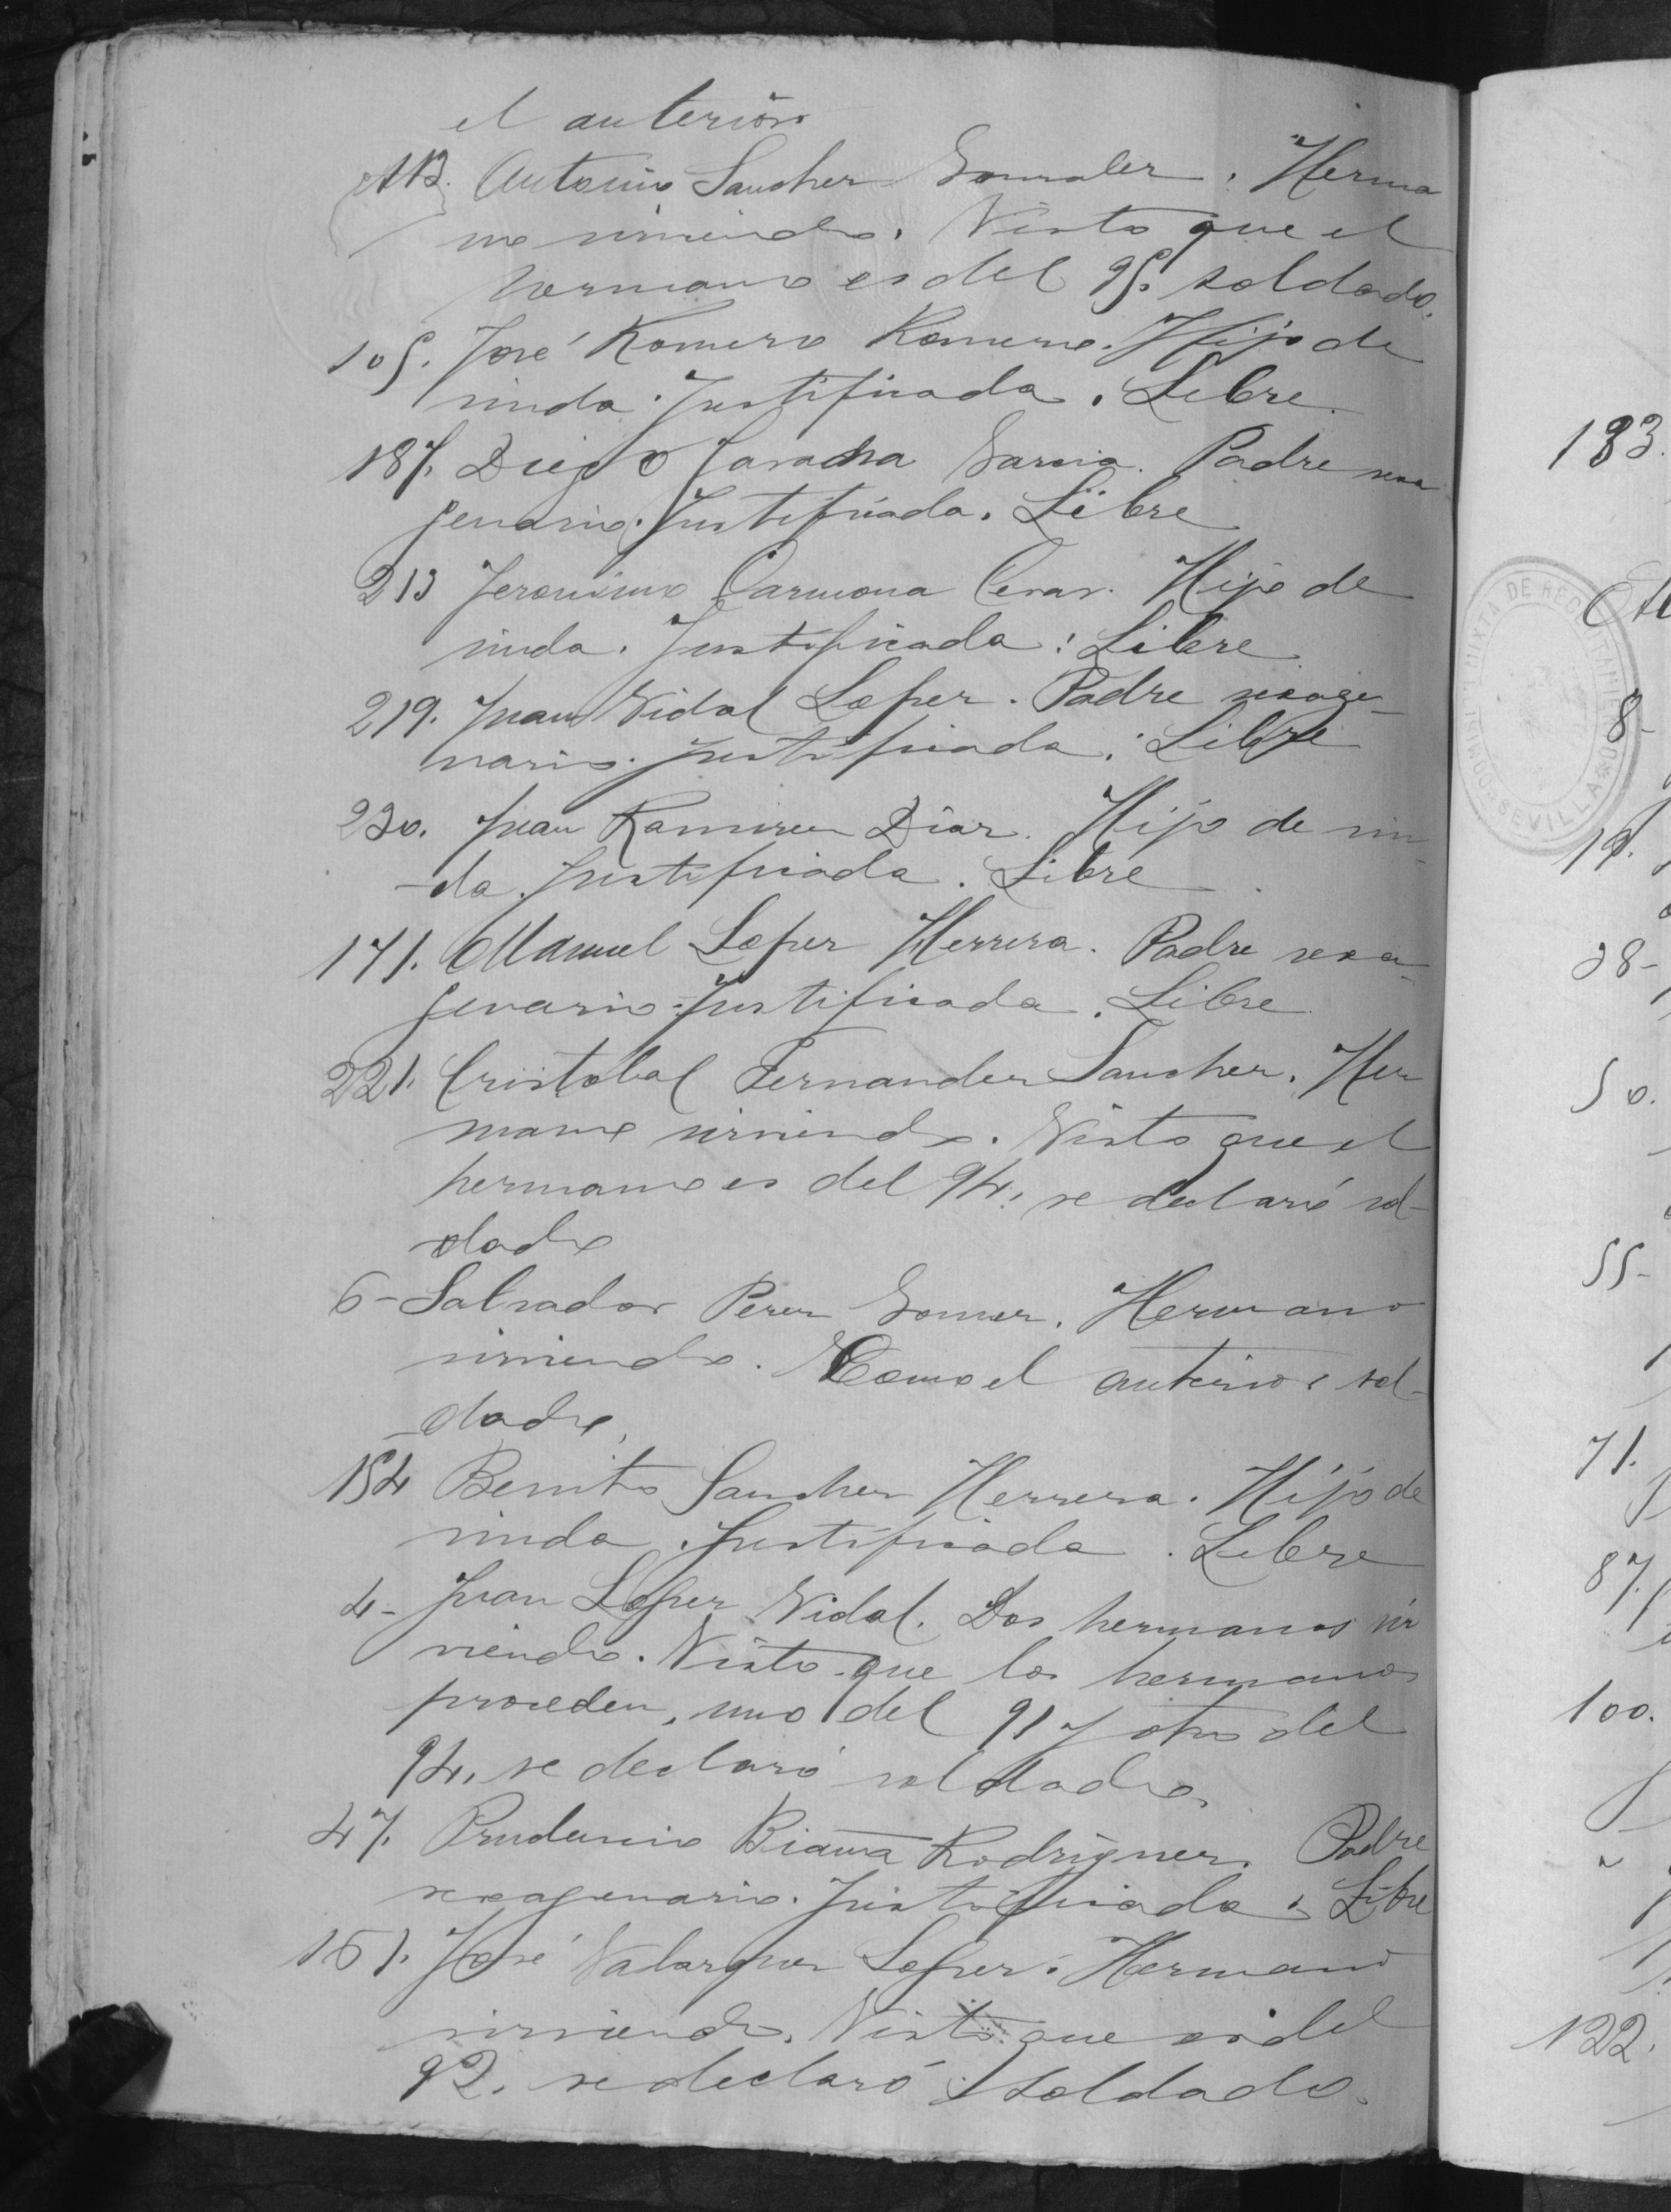 el anterior
113. Antonio Sanchez Gonzalez. Herma
no sirviendo. Visto que el
hermano es del 95. soldado.
105. José Romero Romero. Hijo de
viuda. Justificada. Libre.
187. Diego Garcia. Padre sexa
genario. Justificada. Libre
213 Jeronimo Carmona. Hijo de
viuda. Justificada: Libre
219. Juan Vidal Lopez. Padre sexage-
nario. Justificada: Libre
230. Juan Ramirez Diaz. Hijo de viu-
-da. Justificada. Libre
171. Manuel Lopez Herrera. Padre sexa-
genario. Justificada. Libre
221. Cristobal Fernandez Sanchez. Her
mano sirviendo. Visto que el
hermano es del 94. se declaró sol-
-dado
6- Salvador Perez Gomez. Hermano
sirviendo. Como el anterior sol-
-dado.
154 Benito Sanchez Herrera. Hijo de
viuda. Justificada. Libre
4- Juan Lopez Vidal. Dos hermanos sir
viendo. Visto que los hermanos
proceden, uno del 91 y otro del
94. se declaró soldado.
47. Prudencio Rodriguez. Padre
sexagenario. Justificada. Libre
161. José Lopez. Hermano
sirviendo. Visto que es del
92. se declaró soldado.
183.
8-
19.
38-
50.
55-
71.
87.
100.
122.
SEVILLA